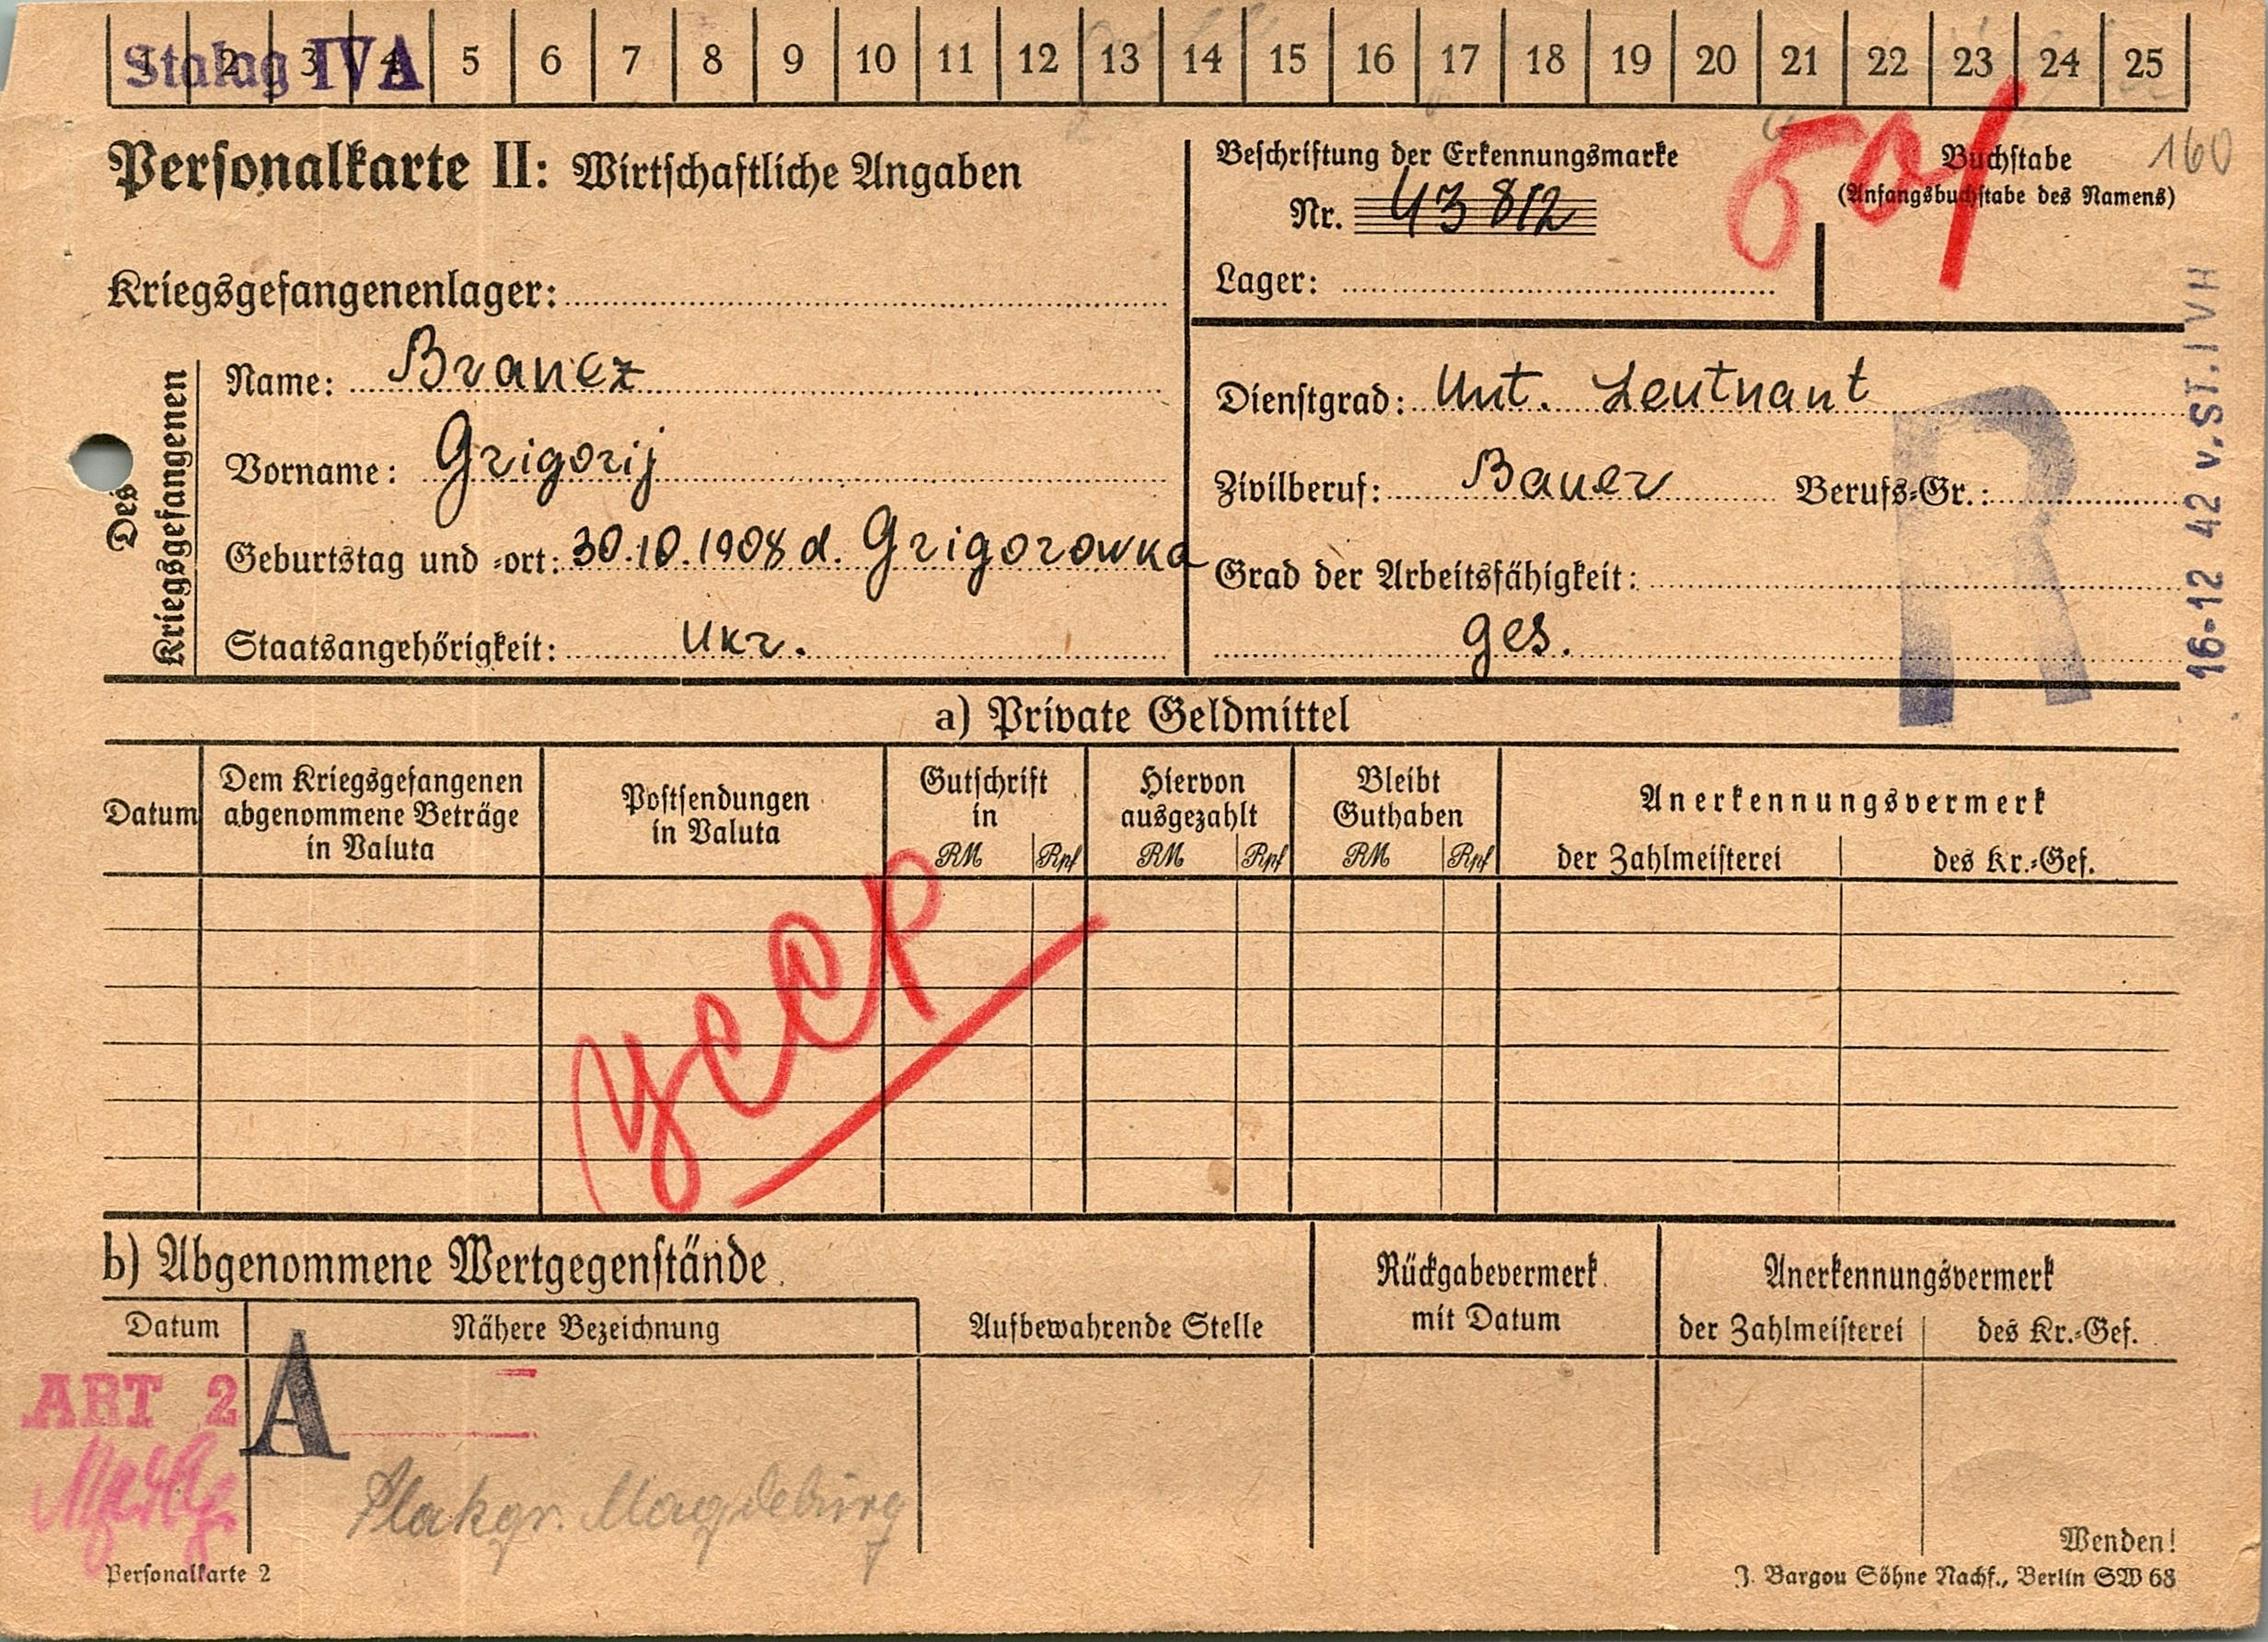 Stalag IV A
1 2 3 4 5 6 7 8 9 10 11 12 13 14 15 16 17 18 19 20 21 22 23 24 25
Personalkarte II: Wirtschaftliche Angaben
Beschriftung der Erkennungsmarke
Nr. 43 812
Lager:
Buchstabe
(Anfangsbuchstabe des Namens)
160
Kriegsgefangenenlager:
Des Kriegsgefangenen
Name: Branez
Vorname: Grigorij
Geburtstag und -ort: 30.10.1908 d. Grigorowka
Staatsangehörigkeit: Ukr.
Dienstgrad: Unt. Leutnant
Zivilberuf: Bauer Berufs-Gr.:
Grad der Arbeitsfähigkeit:
ges.
R
16-12 42 v. ST. IV H
a) Private Geldmittel
Datum
Dem Kriegsgefangenen
abgenommene Beträge
in Valuta
Postsendungen
in Valuta
Gutschrift
in
RM Rpf
Hiervon
ausgezahlt
RM Rpf
Bleibt
Guthaben
RM Rpf
Anerkennungsvermerk
der Zahlmeisterei des Kr.-Gef.
УССР
b) Abgenommene Wertgegenstände
Datum
Nähere Bezeichnung
Aufbewahrende Stelle
Rückgabevermerk
mit Datum
Anerkennungsvermerk
der Zahlmeisterei des Kr.-Gef.
ABT 2
A
Flakgr. Magdeburg
Wenden!
Personalkarte 2
J. Bargou Söhne Nachf., Berlin SW 68